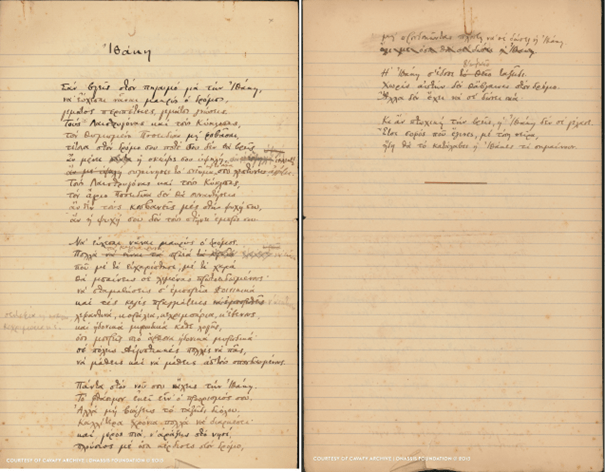 Ἰθάκη
Σὰν βγεῖς στὸν πηγαιμὸ γιὰ τὴν Ἰθάκη,
νὰ εὔχεσαι νἆναι μακρὺς ὁ δρόμος,
γεμάτος περιπέτειες, γεμάτος γνώσεις.
Τοὺς Λαιστρυγόνας καὶ τοὺς Κύκλωπας,
τὸν θυμωμένο Ποσειδῶνα μὴ φοβᾶσαι,
τέτοια στὸν δρόμο σου ποτέ σου δὲν θὰ βρεῖς
ἂν μένει ἡ σκέψις σου ὑψηλή,
συγκίνησις τὸ
Τοὺς Λαιστρυγόνας καὶ τοὺς Κύκλωπας,
τὸν ἄγριο Ποσειδῶνα δὲν θὰ συναντήσεις
ἂν δὲν τοὺς κουβανεῖς μὲς στὴν ψυχή σου,
ἂν ἡ ψυχή σου δὲν τοὺς στήνει ἐμπρός σου.
Νὰ εὔχεσαι νἆναι μακρὺς ὁ δρόμος.
Πολλὰ τὰ πρωϊὰ
ποῦ μὲ τί εὐχαρίστησι, μὲ τί χαρὰ
θὰ μπαίνεις σὲ λιμένας πρωτοειδωμένους·
νὰ σταματήσεις σ' ἐμπορεῖα Φοινικικὰ
καὶ τὲς καλὲς πραγμάτειες
κοράλλια, κεχριμπάρια, κ' ἔβενους,
καὶ ἡδονικὰ μυρωδικὰ κάθε λογῆς,
ὅσο μπορεῖς πιὸ ἄφθονα ἡδονικὰ μυρωδικὰ·
σὲ πόλεις Αἰγυπτιακὲς πολλὲς νὰ πᾷς,
νὰ μάθεις καὶ νὰ μάθεις ἀπ' τοὺς σπουδασμένους.
Πάντα στὸν νοῦ σου νἄχεις τὴν Ἰθάκη.
Τὸ φθάσιμον ἐκεῖ εἶν' ὁ προορισμός σου.
Ἀλλὰ μὴ βιάζεις τὸ ταξεῖδι διόλου.
Καλλίτερα χρόνια πολλὰ νὰ διαρκέσει·
καὶ γέρος πιὰ ν' ἀράξεις στὸ νησί,
πλούσιος μὲ ὅσα κέρδισες στὸν δρόμο,
COURTESY OF CAVAFY ARCHIVE ©ONASSIS FOUNDATION
μὴ προσδοκῶντας πλούτη νὰ σὲ δώσει ἡ Ἰθάκη.
Ἡ Ἰθάκη σ' ἔδωσε τὸ ταξεῖδι.
Χωρὶς αὐτὴν δὲν θἄβγαινες στὸν δρόμο.
Ἄλλα δὲν ἔχει νὰ σὲ δώσει πιά.
Κι ἂν πτωχικὴ τὴν βρεῖς, ἡ Ἰθάκη δὲν σὲ γέλασε.
Ἔτσι σοφὸς ποῦ ἔγινες, μὲ τόση πεῖρα,
ἤδη θὰ τὸ κατάλαβες ἡ Ἰθάκες τί σημαίνουν.
COURTESY OF CAVAFY ARCHIVE ©ONASSIS FOUNDATION